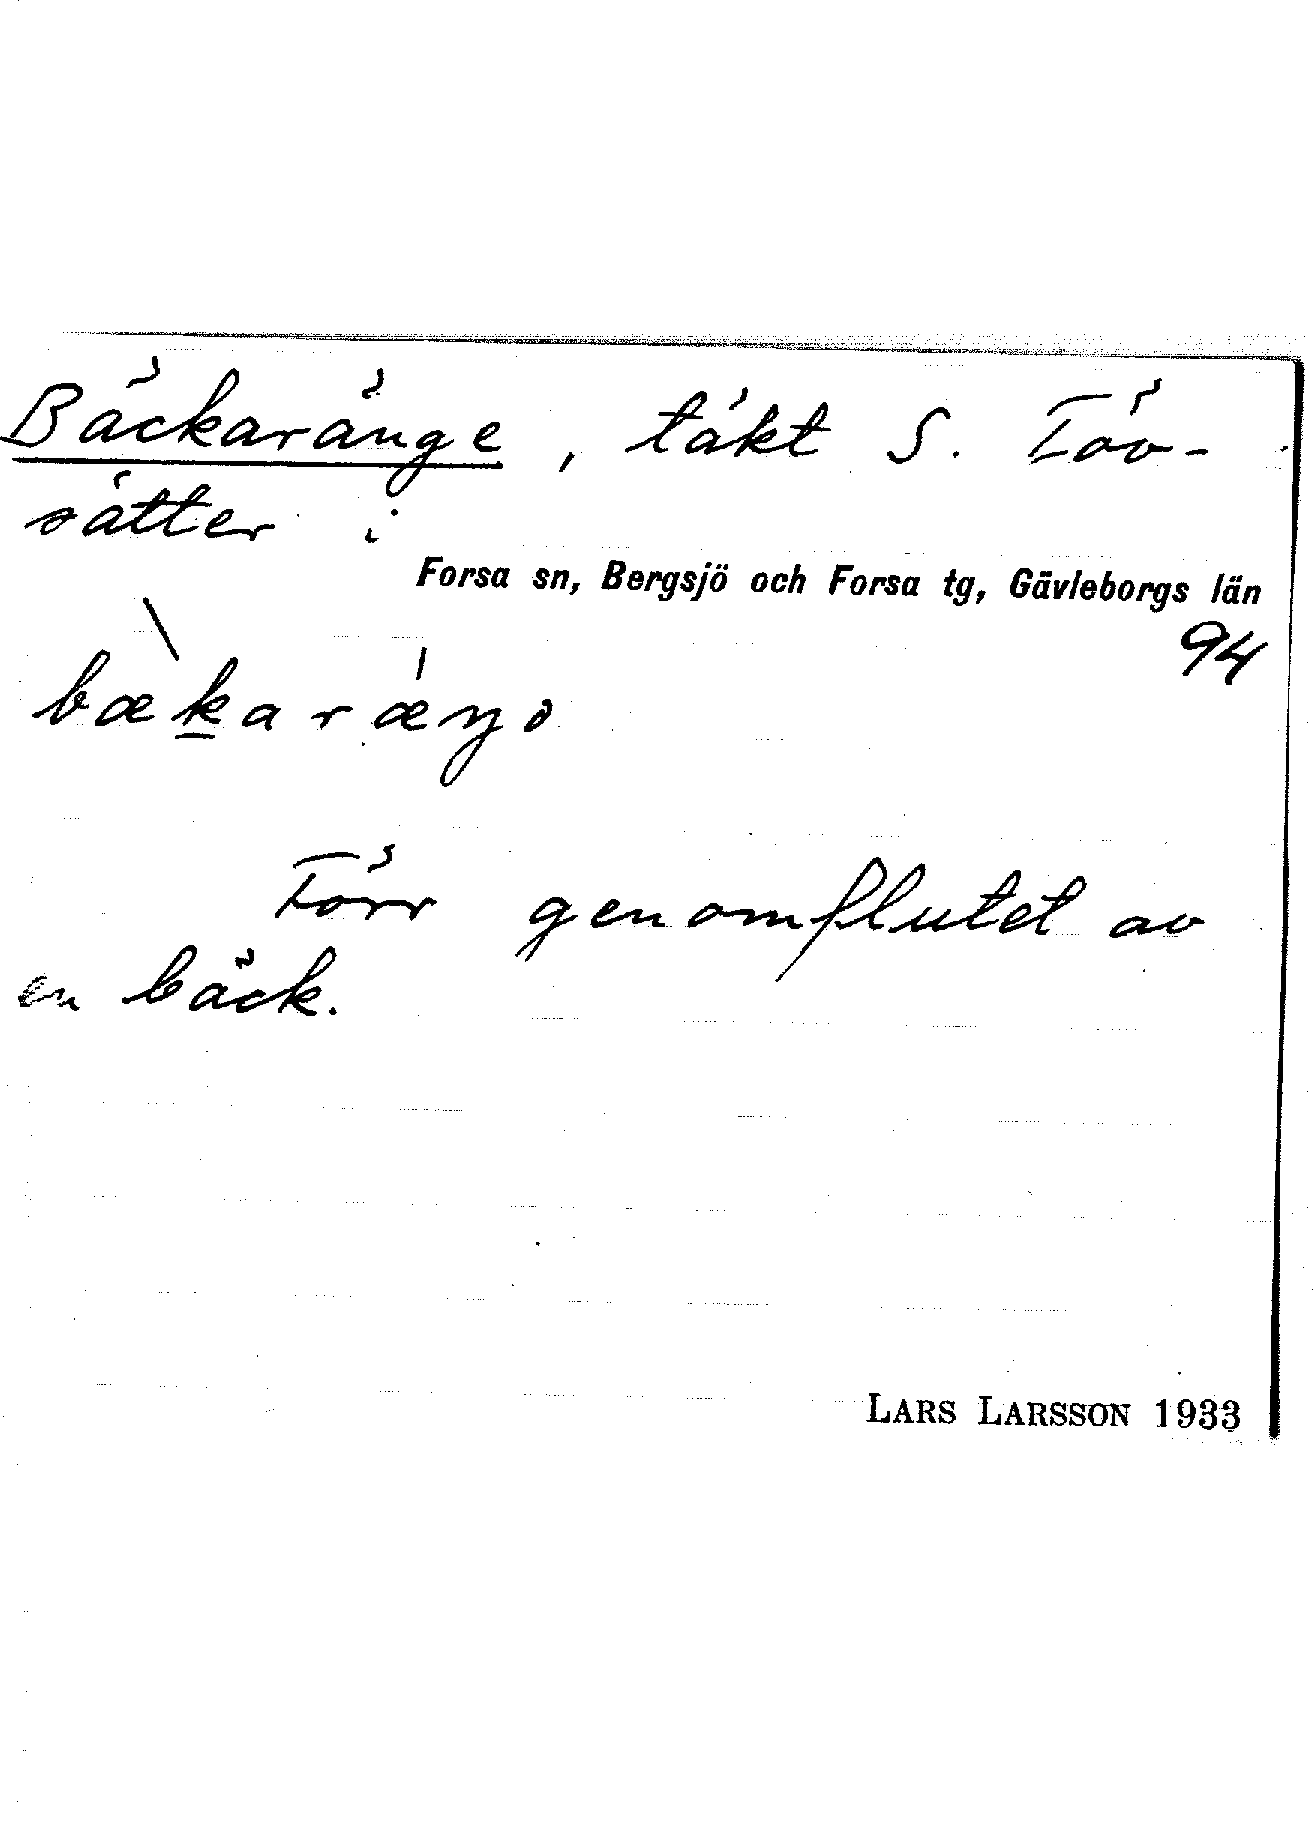 Bäckaränge, täkt S. Föv-
sätter i
Forsa sn, Bergsjö och Forsa tg, Gävleborgs län
94
bækaræŋə
Förr genomflutet av
en bäck.
LARS LARSSON 1933